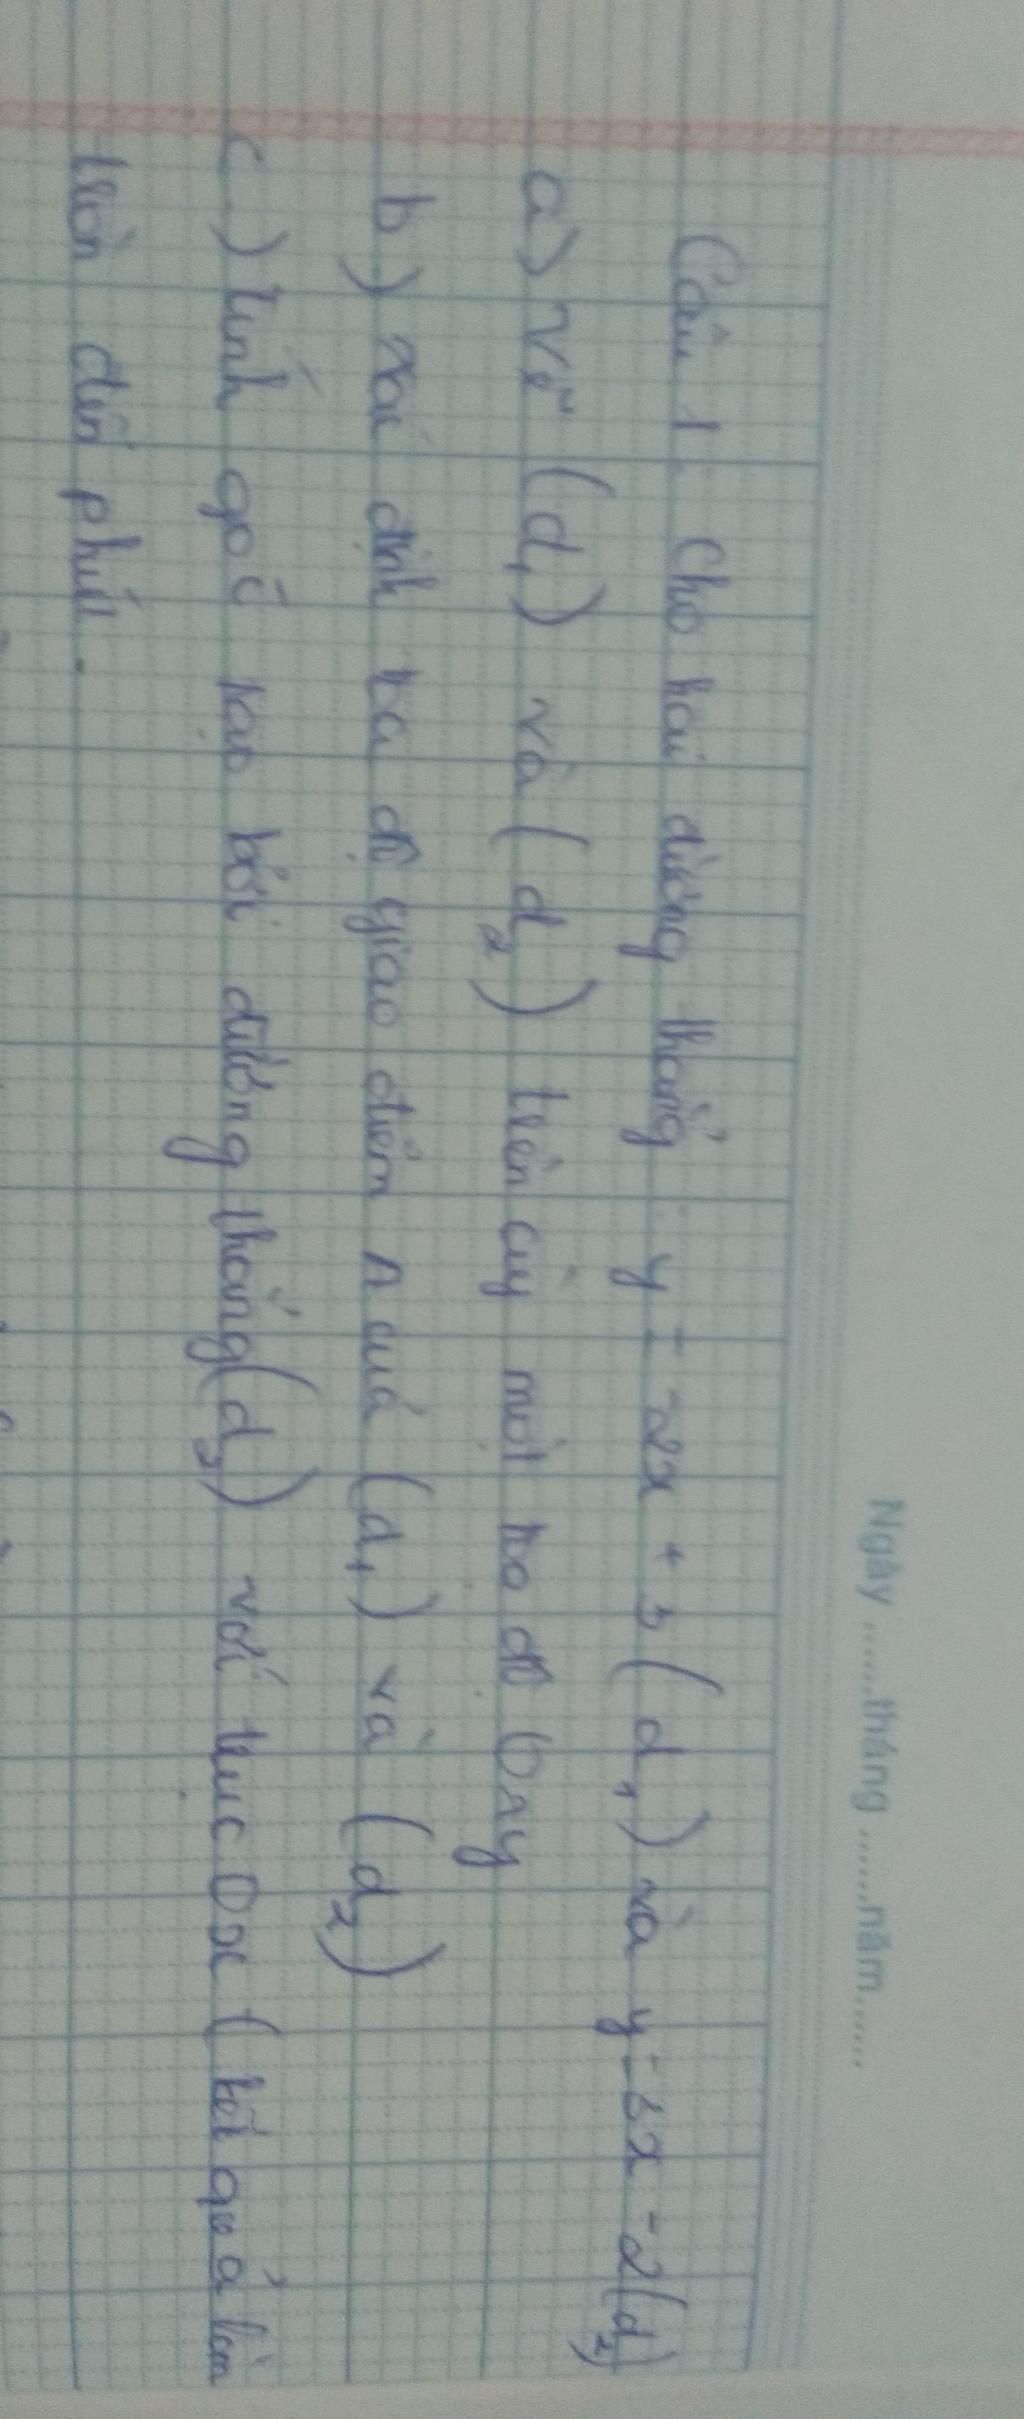 Ngày ......tháng ......năm......
Câu 1. Cho hai đường thẳng : y = 2x + 3 (d₁) và y = 3x - 2 (d₂)
a) Vẽ (d₁) và (d₂) trên cùng một tọa độ Oxy
b) xác định tọa độ giao điểm A của (d₁) và (d₂)
c) tính góc tạo bởi đường thẳng (d₂) với trục Ox (kết quả làm
tròn đến phút.